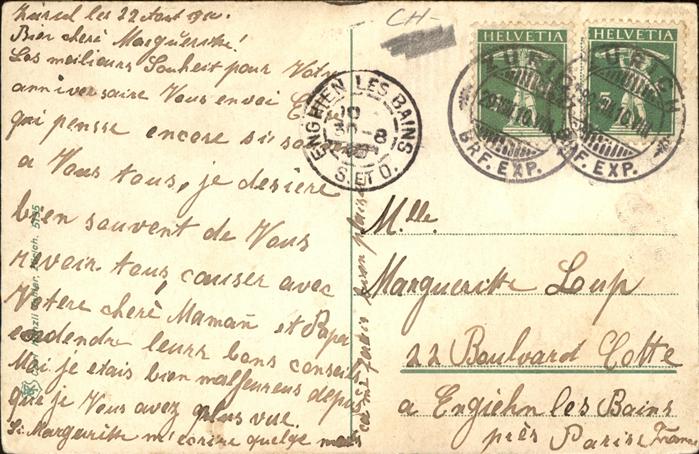 Zürich les 22 Aout 1910.
Bien cheré Margueritte!
Les meilieurs Souheit pour Votre
anniversaire Vous envoi
qui pensse encore si
a Vous tous, je desière
bien souvent de Vous
revoir tous causer avec
Votere cheré Maman et Papa
endendre leurs bons conseils
Moi je etais bien malheureus depuis
que je Vous avez plus vue.
Si Marguerite m'ecrire quelge mots
CH-
ENGHIEN LES BAINS
S. ET O.
HELVETIA
5
HELVETIA
5
ZÜRICH
BRF. EXP.
ZÜRICH
BRF. EXP.
Mlle.
Margueritte Loup
22 Boulvard Cotte
a Engiehn les Bains
près Paris France
Zürich. 5195